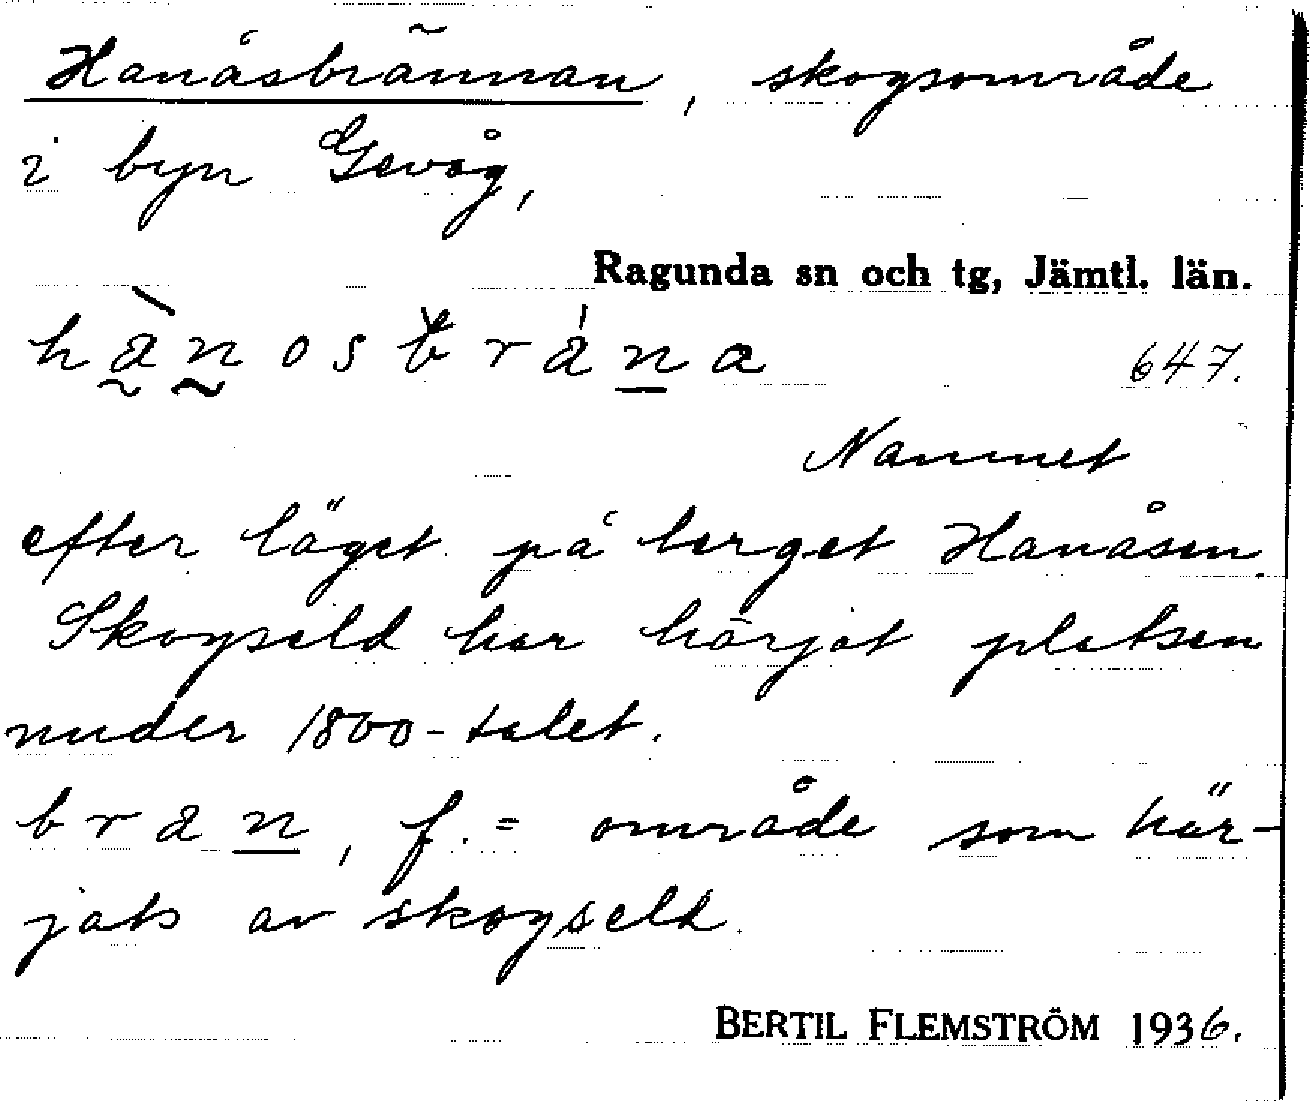 Hanåsbrännan, skogsområde
i byn Gevåg,
Ragunda sn och tg, Jämtl. län.
hànosbrána
647.
Namnet
efter läget på berget Hanåsen.
Skogseld har härjat platsen
under 1800-talet.
bran, f. = område som här-
jats av skogseld.
BERTIL FLEMSTRÖM 1936.